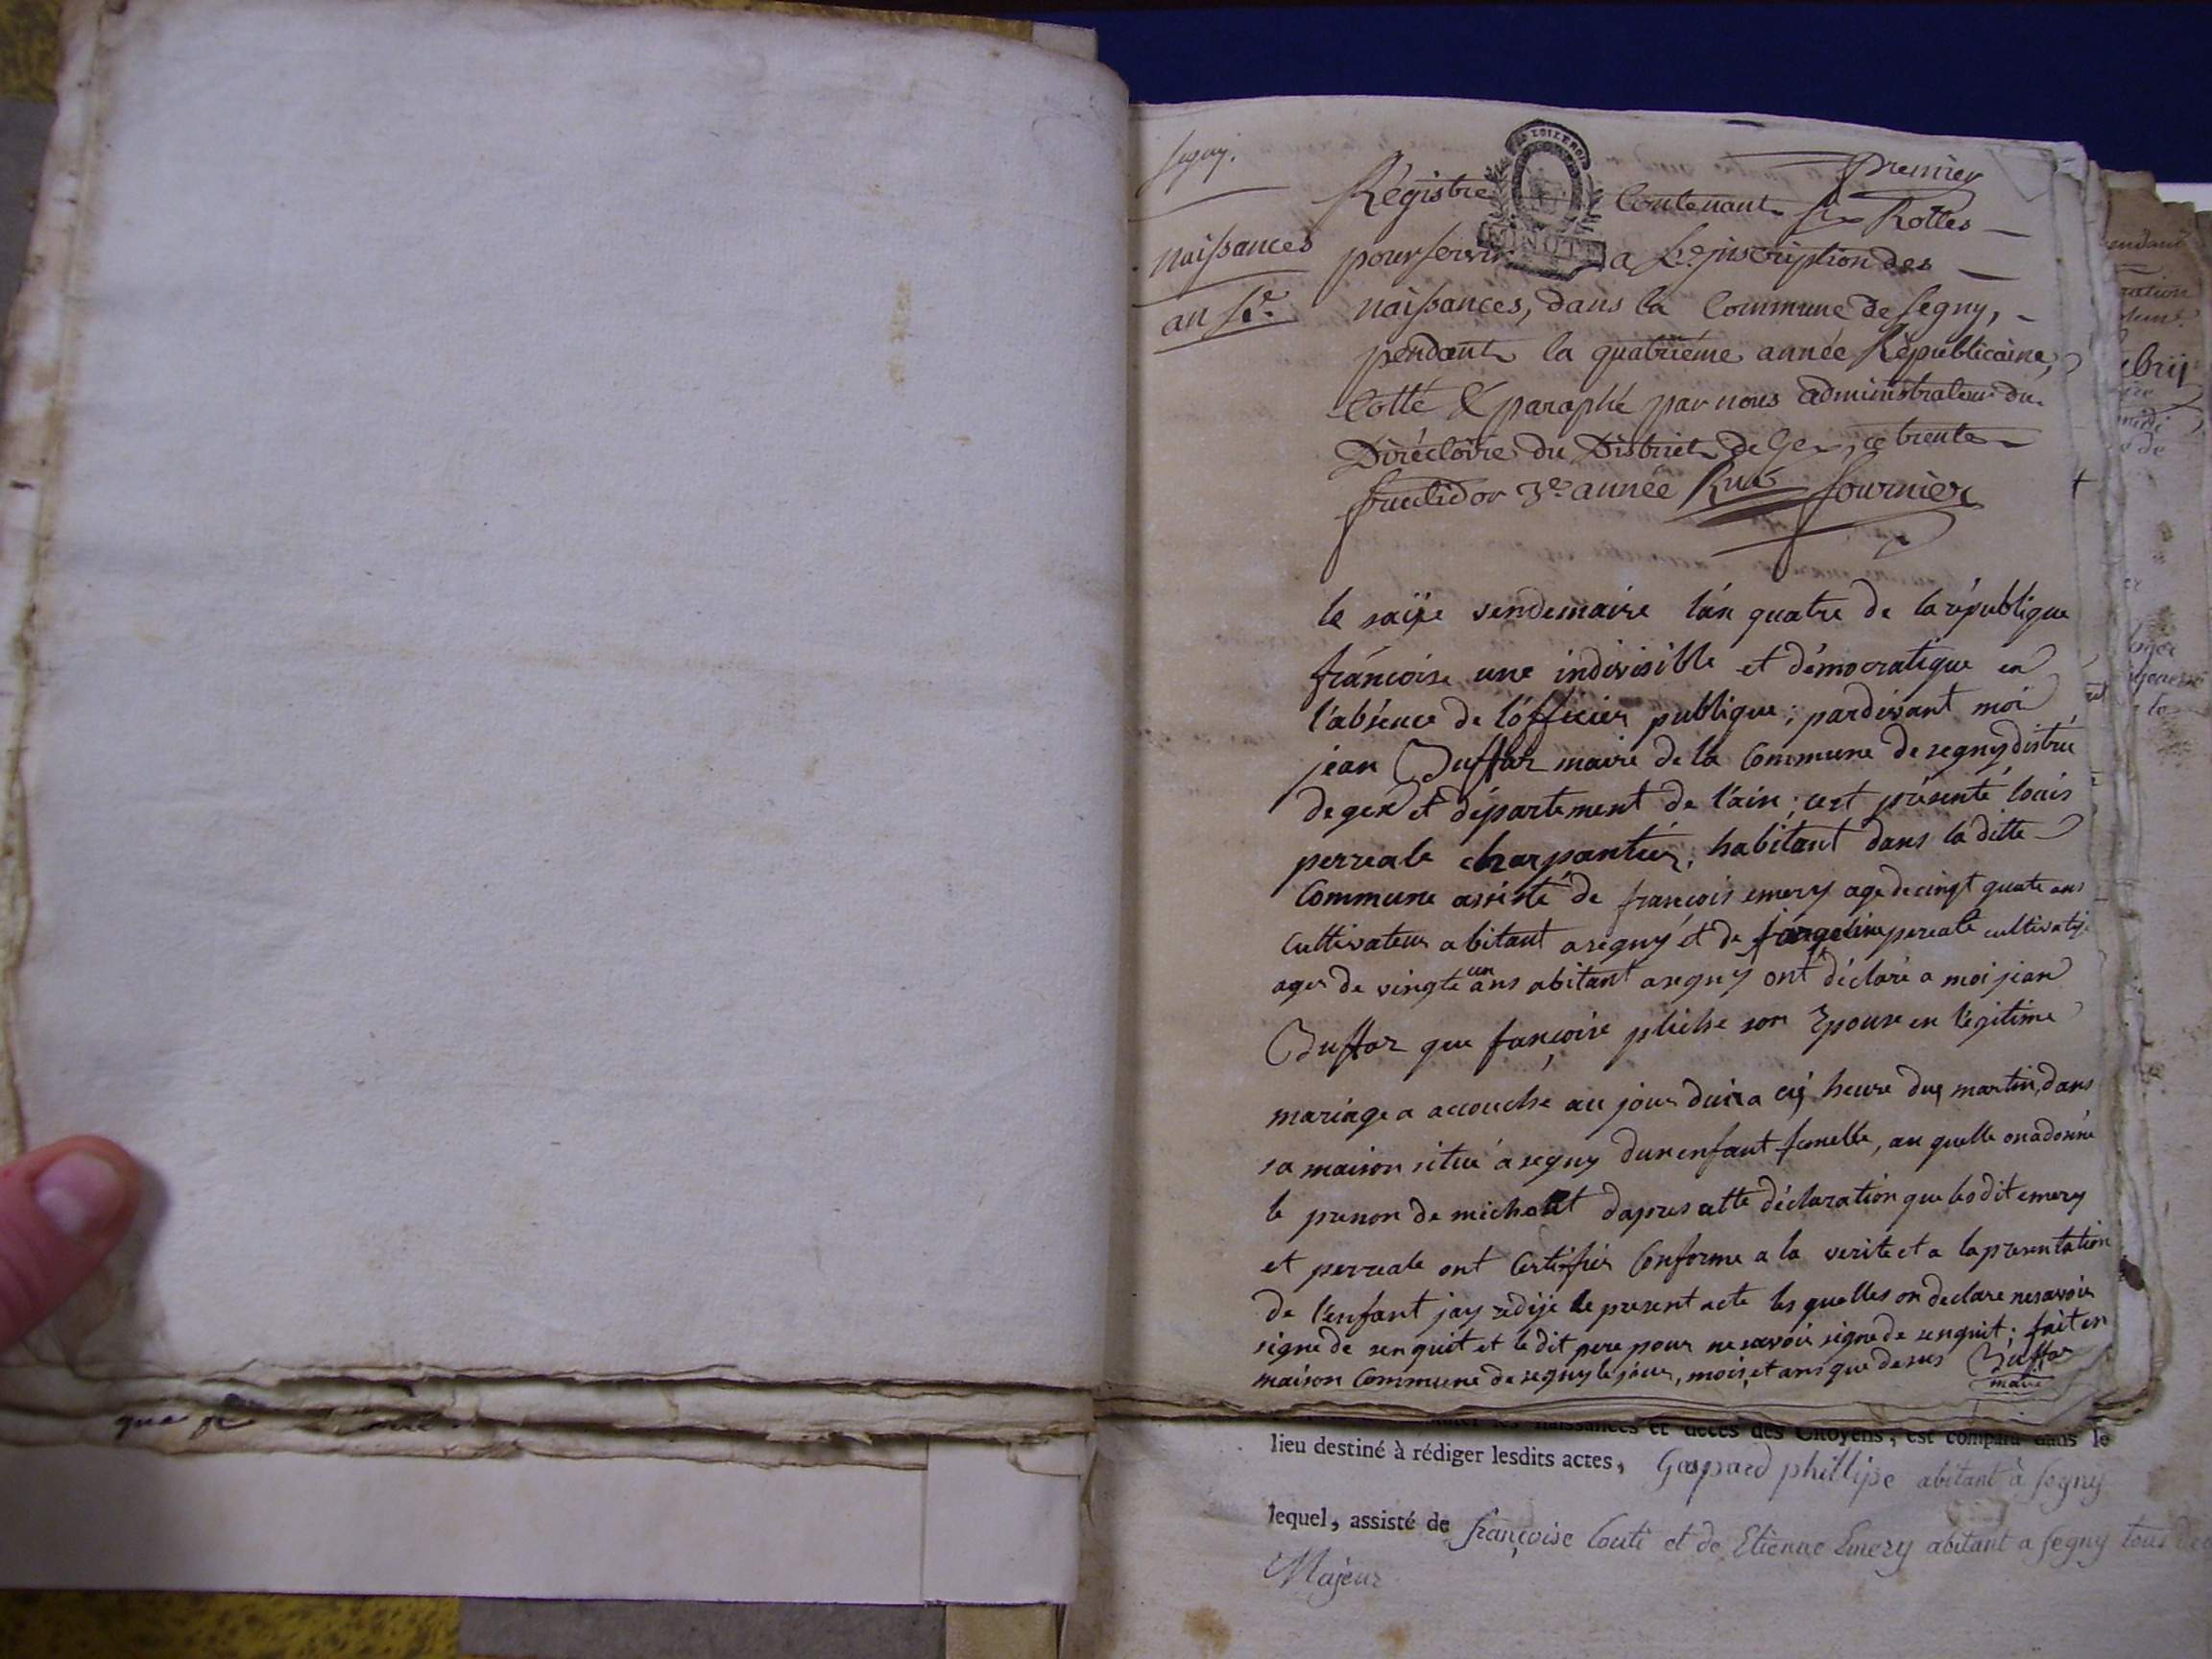 Segny.
naissances
an 4e.
premier
Régistre contenant six Rolles
MINUTE
pour servir a L'inscription des
naissances, dans la Commune de Segny,
pendant la quatriéme année Républicaine,
Cotté & paraphé par nous administrateur du
Diréctoire du District de Gex, ce trente
fructidor 3e année Rné fournier
le saise vendemaire l'an quatre de la république
françoise une indivisible et démocratique en
l'absence de l'officier publique, pardevant moi
jean Buffar maire de la Commune de segny distric
de gex et département de l'ain; cest présenté louis
perreale charpantier, habitant dans la ditte
Commune assisté de françois emery age de cingt quate ans
Cultivateur abitant a segny et de jaqeline pereale cultivatije
ager de vingte un ans abitant a segny ont déclaré a moi jean
Buffar que françoise pliche son Epouse en légitime
mariage a accouche au jour duia cij heure duę martin, dans
sa maison situé a segny dun enfant femelle, au quelle on a donné
le prenon de michalet dapres cette déclaration que les dit emery
et perreale ont Certifier Conforme a la verite et a la presentation
de l'enfant jay redije le present acte les quelles on declare ne savoir
signe de senquit et le dit pere pour ne savoir signe de senquit; fait en
maison Commune de segny le jour, mois et ans que desus Buffar
maire
naissances et décès des Citoyens, est comparu dans le
lieu destiné à rédiger lesdits actes, Gaspard phillipe abitant à segny
lequel, assisté de françoise Couti et de Etienne Emery abitant a segny tous deux
Majeur